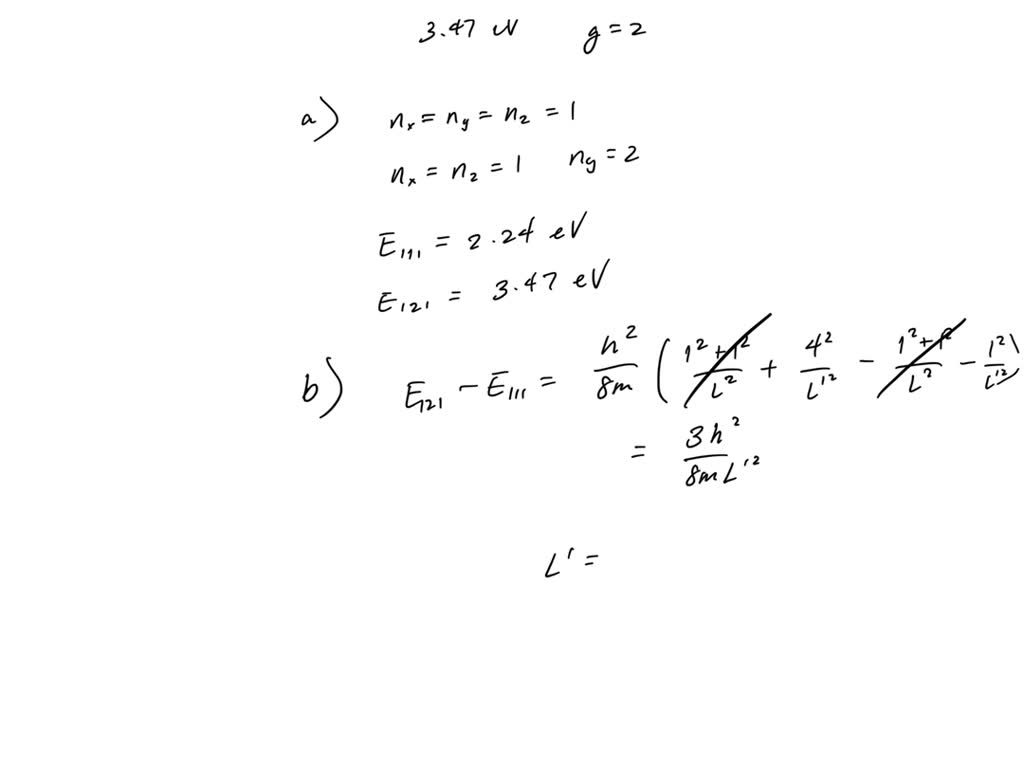 3.47 eV g = 2
a) nₓ = n_y = n_z = 1
nₓ = n_z = 1 n_y = 2
E₁₁₁ = 2.24 eV
E₁₂₁ = 3.47 eV
b) E₁₂₁ - E₁₁₁ = h²/8m ( (1² + 1²)/L² + 4²/L'² - (1² + 1²)/L² - 1²/L'² )
= 3h²/8mL'²
L' =